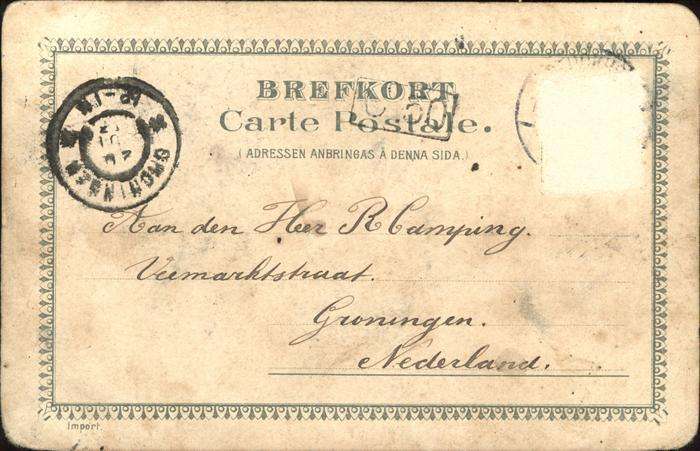 BREFKORT
Carte Postale.
(ADRESSEN ANBRINGAS Å DENNA SIDA.)
GRONINGEN
Aan den Heer R Camping.
Veemarktstraat.
Groningen.
Nederland.
Import.